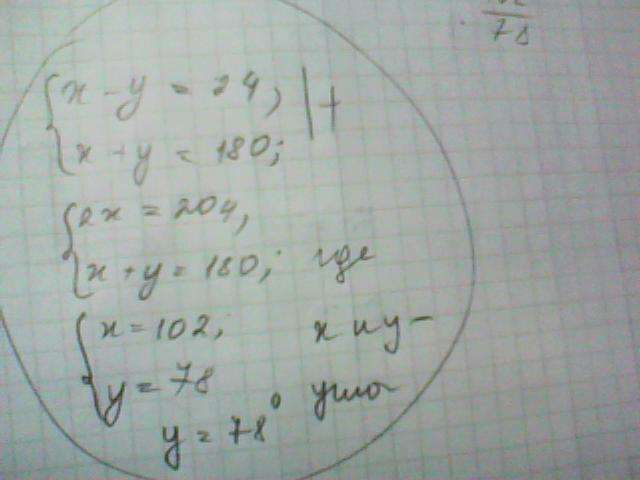 78
{ x - y = 24, | +
x + y = 180;
{ 2x = 204,
x + y = 180; где
{ x = 102; x и y -
y = 78 углы
y = 78°